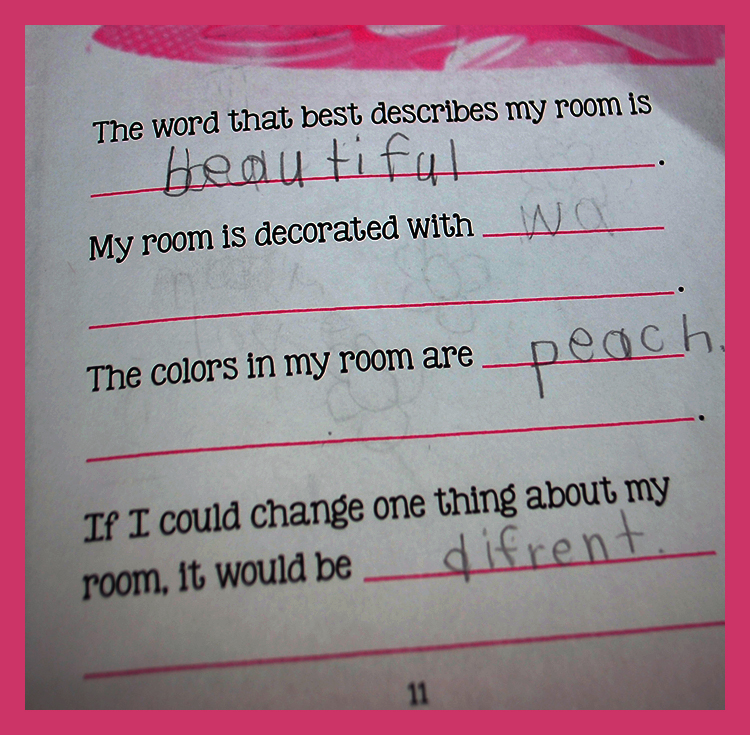 The word that best describes my room is
beautiful.
My room is decorated with wa
.
The colors in my room are peach.
.
If I could change one thing about my
room, it would be difrent.
11